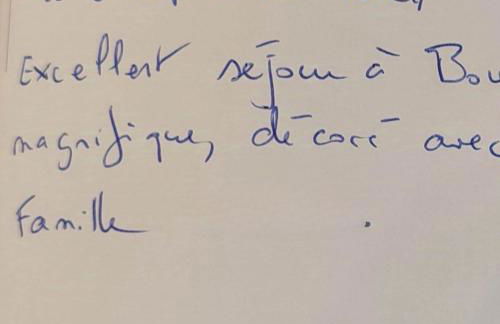 Excellent séjour à Bou
magnifique, décoré avec
Famille